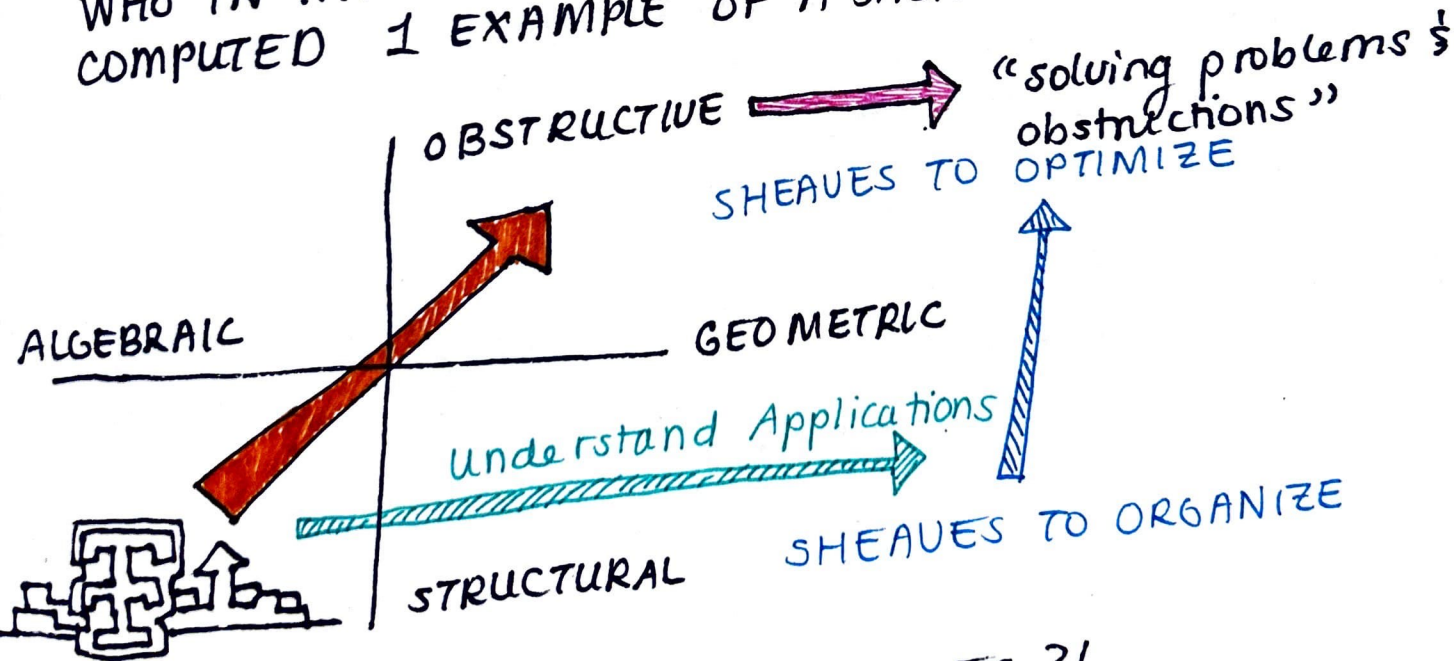 WHO IN
COMPUTED 1 EXAMPLE OF A
OBSTRUCTIVE
"solving problems &
obstructions"
SHEAVES TO OPTIMIZE
ALGEBRAIC
GEOMETRIC
Understand Applications
SHEAVES TO ORGANIZE
STRUCTURAL